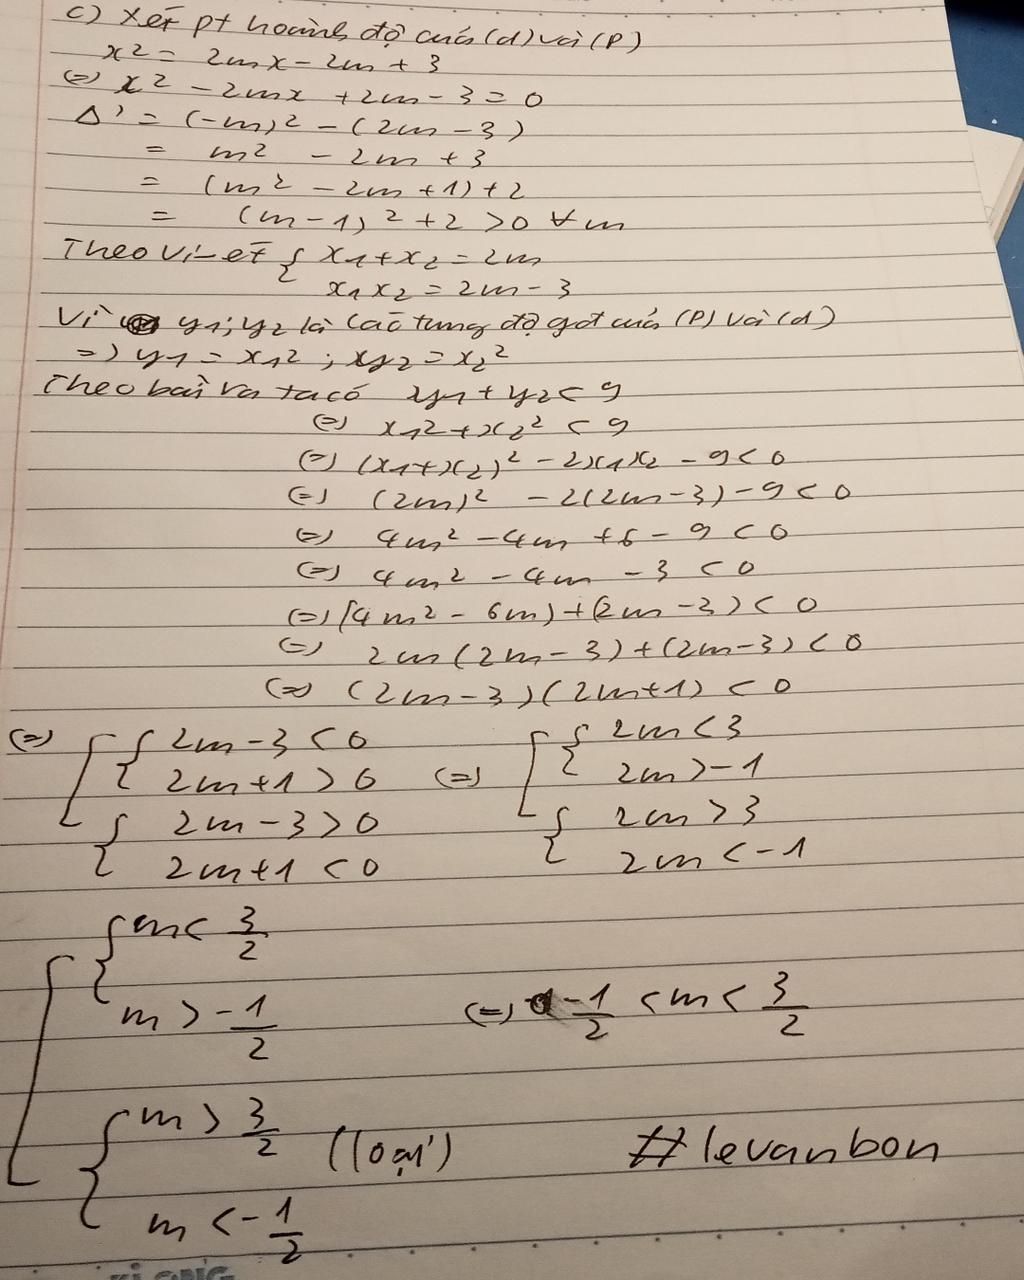 c) Xét pt hoành độ của (d) và (P)
x² = 2mx - 2m + 3
(=) x² - 2mx + 2m - 3 = 0
Δ' = (-m)² - (2m - 3)
= m² - 2m + 3
= (m² - 2m + 1) + 2
= (m - 1)² + 2 > 0 ∀m
Theo Vi-ét { x1 + x2 = 2m
x1x2 = 2m - 3
Vì y1; y2 là các tung độ gđ của (P) và (d)
=) y1 = x1²; xy2 = x2²
Theo bài ra ta có y1 + y2 < 9
(=) x1² + x2² < 9
(=) (x1 + x2)² - 2x1x2 - 9 < 0
(=) (2m)² - 2(2m - 3) - 9 < 0
(=) 4m² - 4m + 6 - 9 < 0
(=) 4m² - 4m - 3 < 0
(=) (4m² - 6m) + (2m - 3) < 0
(=) 2m(2m - 3) + (2m - 3) < 0
(=) (2m - 3)(2m + 1) < 0
(=) [ { 2m - 3 < 0 (=) [ { 2m < 3
2m + 1 > 0 2m > -1
{ 2m - 3 > 0 { 2m > 3
2m + 1 < 0 2m < -1
[ { m < 3/2
m > -1/2 (=) -1/2 < m < 3/2
{ m > 3/2 (loại) #levanbon
m < -1/2